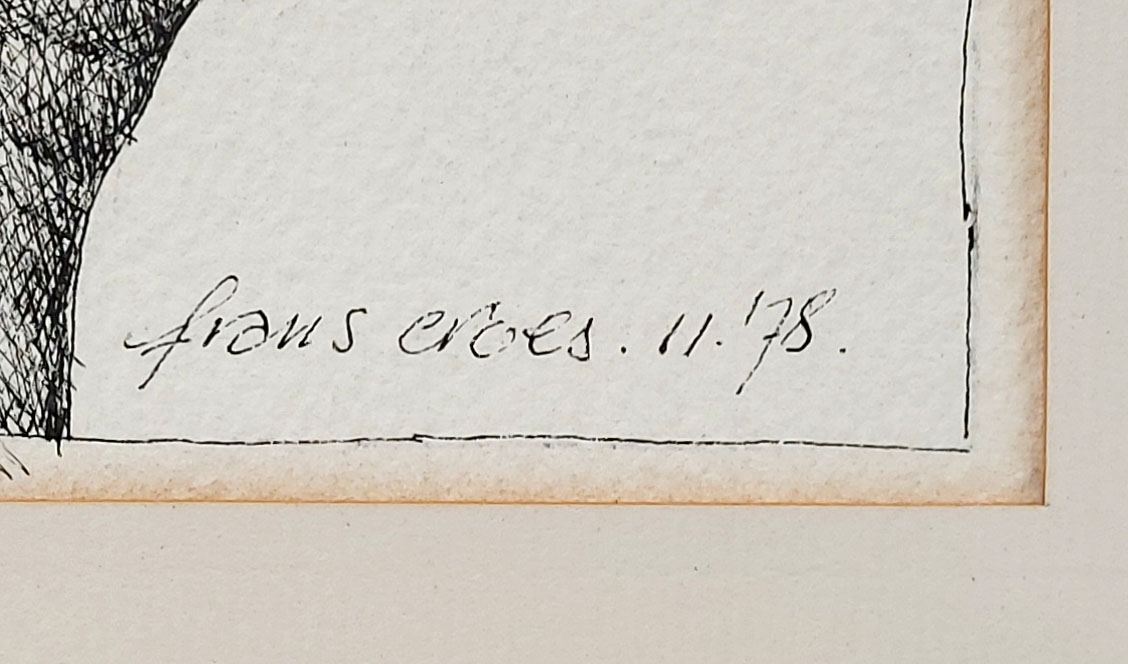 frans croes. 11.'78.